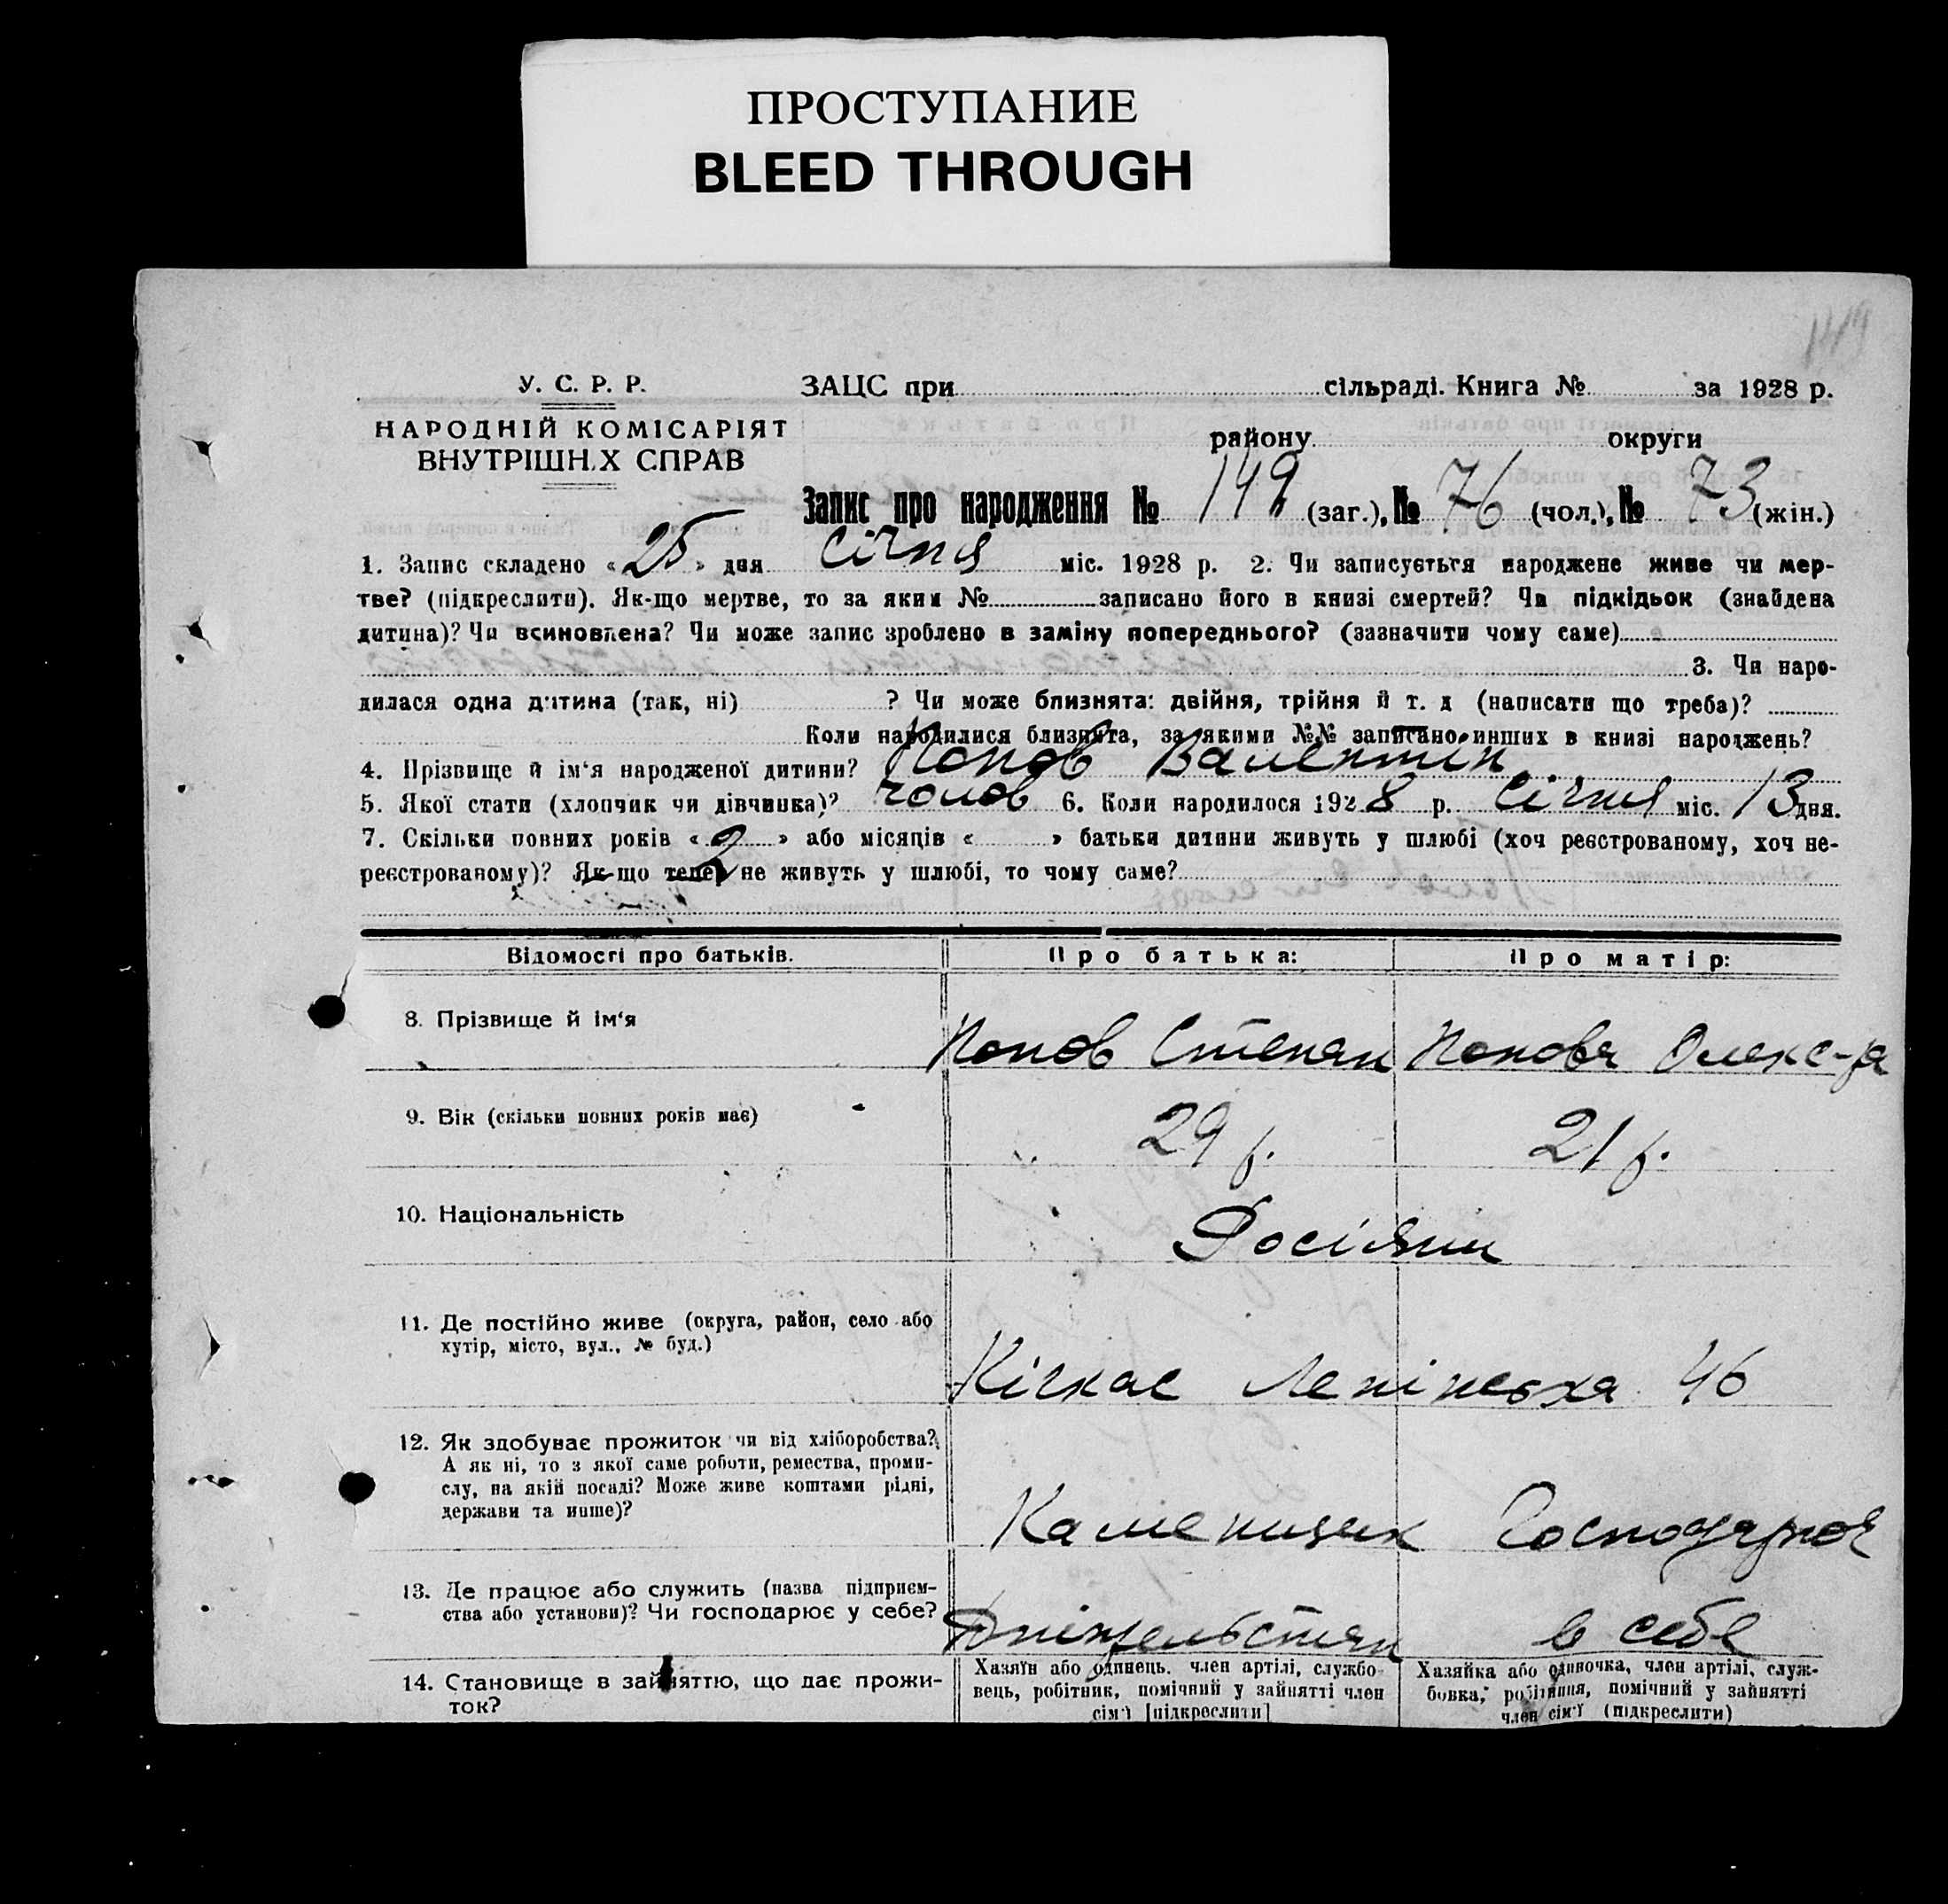 ПРОСТУПАНИЕ
BLEED THROUGH
149
У. С. Р. Р.
ЗАЦС при сільраді. Книга № за 1928 р.
НАРОДНІЙ КОМІСАРІЯТ
ВНУТРІШНІХ СПРАВ
району округи
Запис про народження № 149 (заг.), № 76 (чол.), № 73 (жін.)
1. Запис складено «25» дня січня міс. 1928 р. 2. Чи записується народжене живе чи мер-
тве? (підкреслити). Як-що мертве, то за яким № записано його в книзі смертей? Чи підкідьок (знайдена
дитина)? Чи всиновлена? Чи може запис зроблено в заміну попереднього? (зазначити чому саме)
3. Чи наро-
дилася одна дитина (так, ні) ? Чи може близнята: двійня, трійня й т. д (написати що треба)?
Коли народилися близнята, за якими №№ записано инших в книзі народжень?
4. Прізвище й ім‘я народженої дитини? Попов Валентин
5. Якої стати (хлопчик чи дівчинка)? чолов 6. Коли народилося 1928 р. Січня міс. 13 дня.
7. Скільки повних років «2» або місяців « » батьки дитини живуть у шлюбі (хоч реєстрованому, хоч не-
реєстрованому)? Як-що тепер не живуть у шлюбі, то чому саме?
Відомості про батьків. Про батька: Про матір:
8. Прізвище й ім‘я Попов Степан Попова Олекс-ра
9. Вік (скільки повних років має) 29 р. 21 р.
10. Національність Росіяни
11. Де постійно живе (округа, район, село або
хутір, місто, вул., № буд.)
Кічкас Ленінська 46
12. Як здобуває прожиток чи від хліборобства?
А як ні, то з якої саме роботи, ремества, проми-
слу, на якій посаді? Може живе коштами рідні,
держави та инше)?
Каменщик Господарює
13. Де працює або служить (назва підприєм-
ства або установи)? Чи господарює у себе?
в себе
14. Становище в зайняттю, що дає прожи-
ток?
Хазяїн або одинець. член артілі, службо-
вець, робітник, помічний у зайнятті член
сім‘ї [підкреслити]
Хазяйка або одиночка, член артілі, служ-
бовка, робітниця, помічний у зайнятті
член сім‘ї (підкреслити)